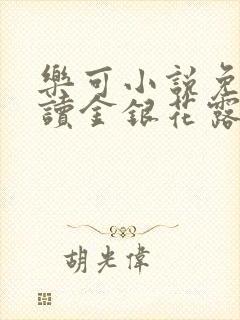 樂可小說免
讀金銀花露
胡光偉